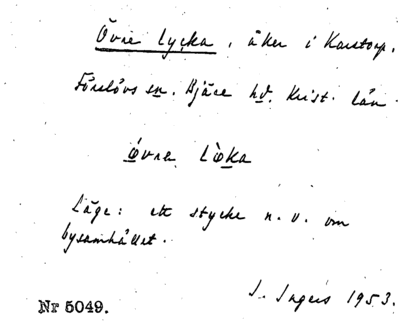 Övre Lycka, åker i Karstorp,
Förslövs sn. Bjäre hd. Krist. län
óvre Lòka
Läge: ett stycke n. v. om
bysamhället.
J. Ingers 1953.
Nr 5049.